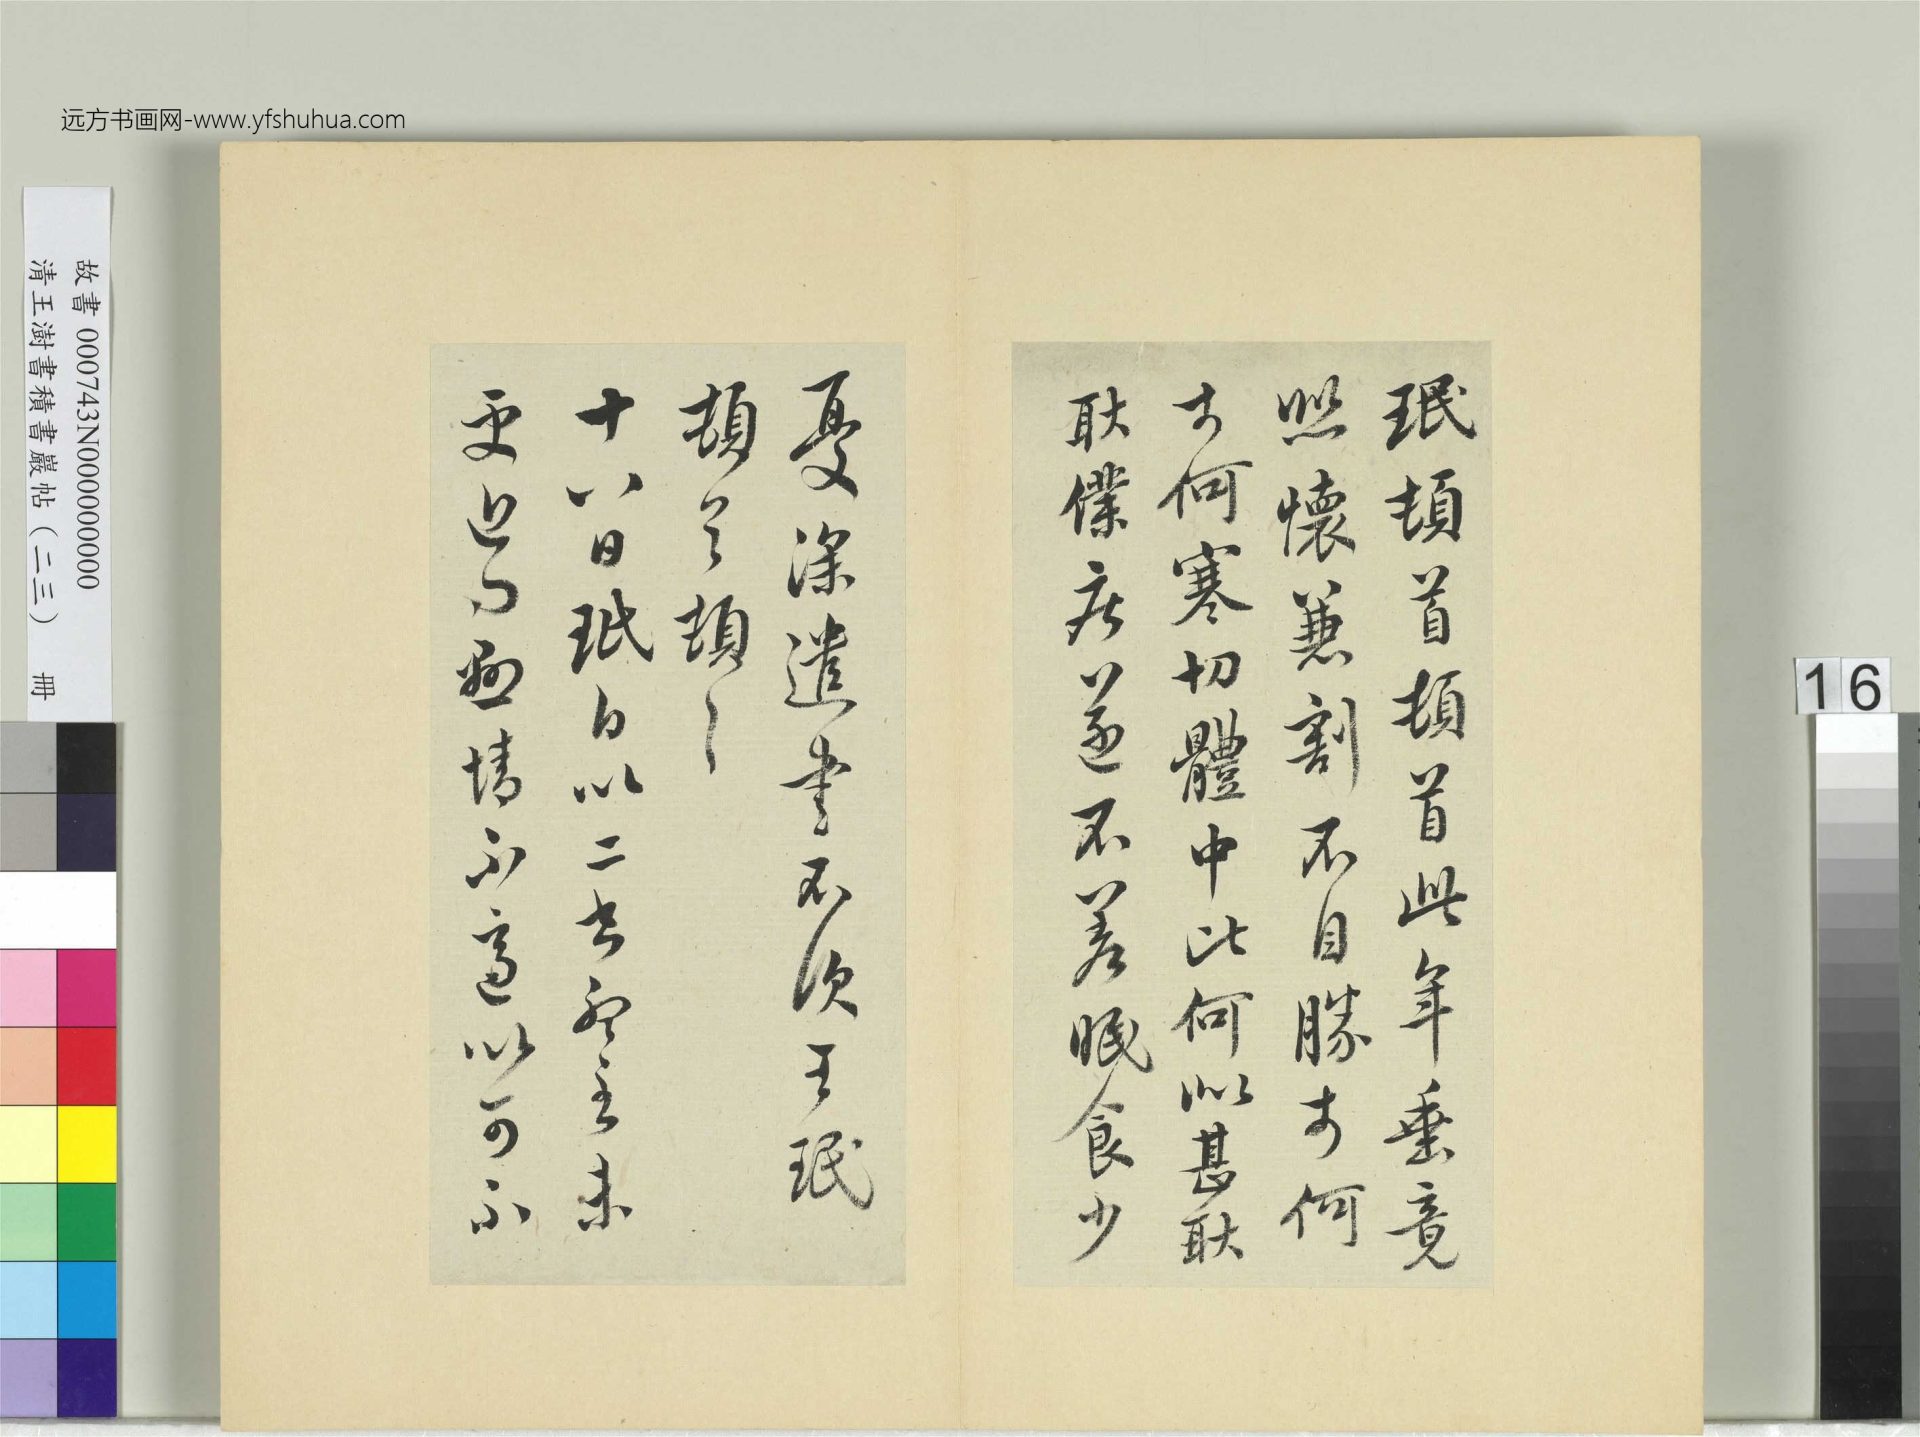 远方书画网-www.yfshuhua.com
故書 000743N000000000
清王澍書積書巖帖(二三) 冊
16
珉頓首頓首此年垂竟
悲懷兼割不自勝奈何
奈何寒切體中比何似甚耿
耿僕疾遂不差眠食少
憂深遣書不次王珉
頓首頓首
十八日珉白以二書 至未
更近 懸情不適以可不